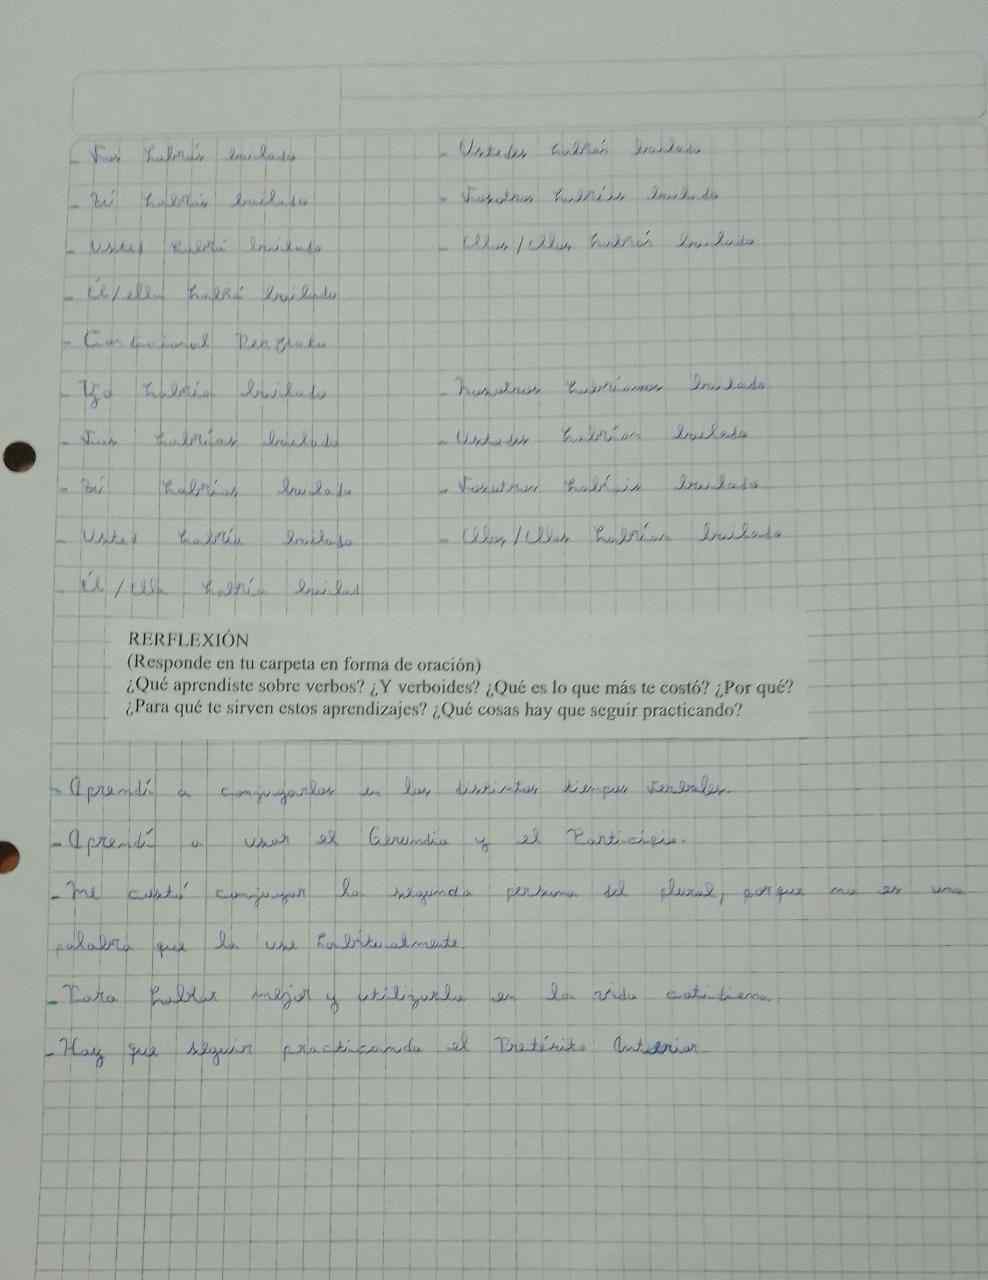 - Vos habrás bailado
- Tú habrás bailado
- Usted habrá bailado
- Él/ella habrá bailado
- Ustedes habrán bailado
- Vosotros habréis bailado
- Ellos/Ellas habrán bailado
- Condicional Perfecto
- Yo habría bailado
- Vos habrías bailado
- Tú habrías bailado
- Usted habría bailado
- Él/Ella habría
- Nosotros habríamos bailado
- Ustedes habrían bailado
- Vosotros bailado
- Ellos/Ellas habrían bailado
RERFLEXIÓN
(Responde en tu carpeta en forma de oración)
¿Qué aprendiste sobre verbos? ¿Y verboides? ¿Qué es lo que más te costó? ¿Por qué?
¿Para qué te sirven estos aprendizajes? ¿Qué cosas hay que seguir practicando?
- Aprendí a conjugarlos en los distintos tiempos verbales.
- Aprendí a usar el Gerundio y el Participio.
- Me costó conjugar la segunda persona del plural, porque no es una
palabra que la use habitualmente.
- Para hablar mejor y utilizarlo en la vida cotidiana.
- Hay que seguir practicando el Pretérito Anterior.